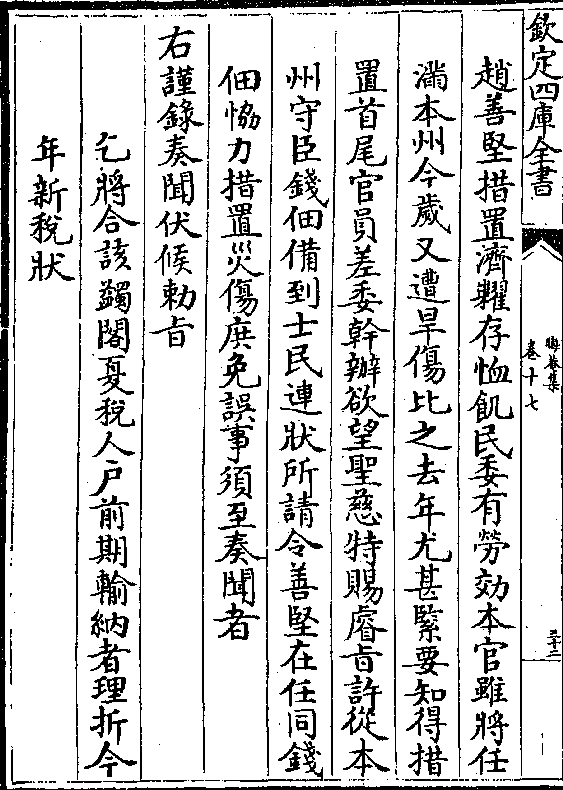 欽定四庫全書
晦菴集
卷十七
三十二
趙善堅措置濟糶存恤飢民委有勞効本官雖將任
滿本州今歲又遭旱傷比之去年尤甚緊要知得措
置首尾官員差委幹辦欲望聖慈特賜睿㫖許從本
州守臣錢佃備到士民連狀所請令善堅在任同錢
佃恊力措置災傷庶免誤事須至奏聞者
右謹錄奏聞伏候勅㫖
乞將合該蠲閣夏稅人户前期輸納者理折今
年新稅狀